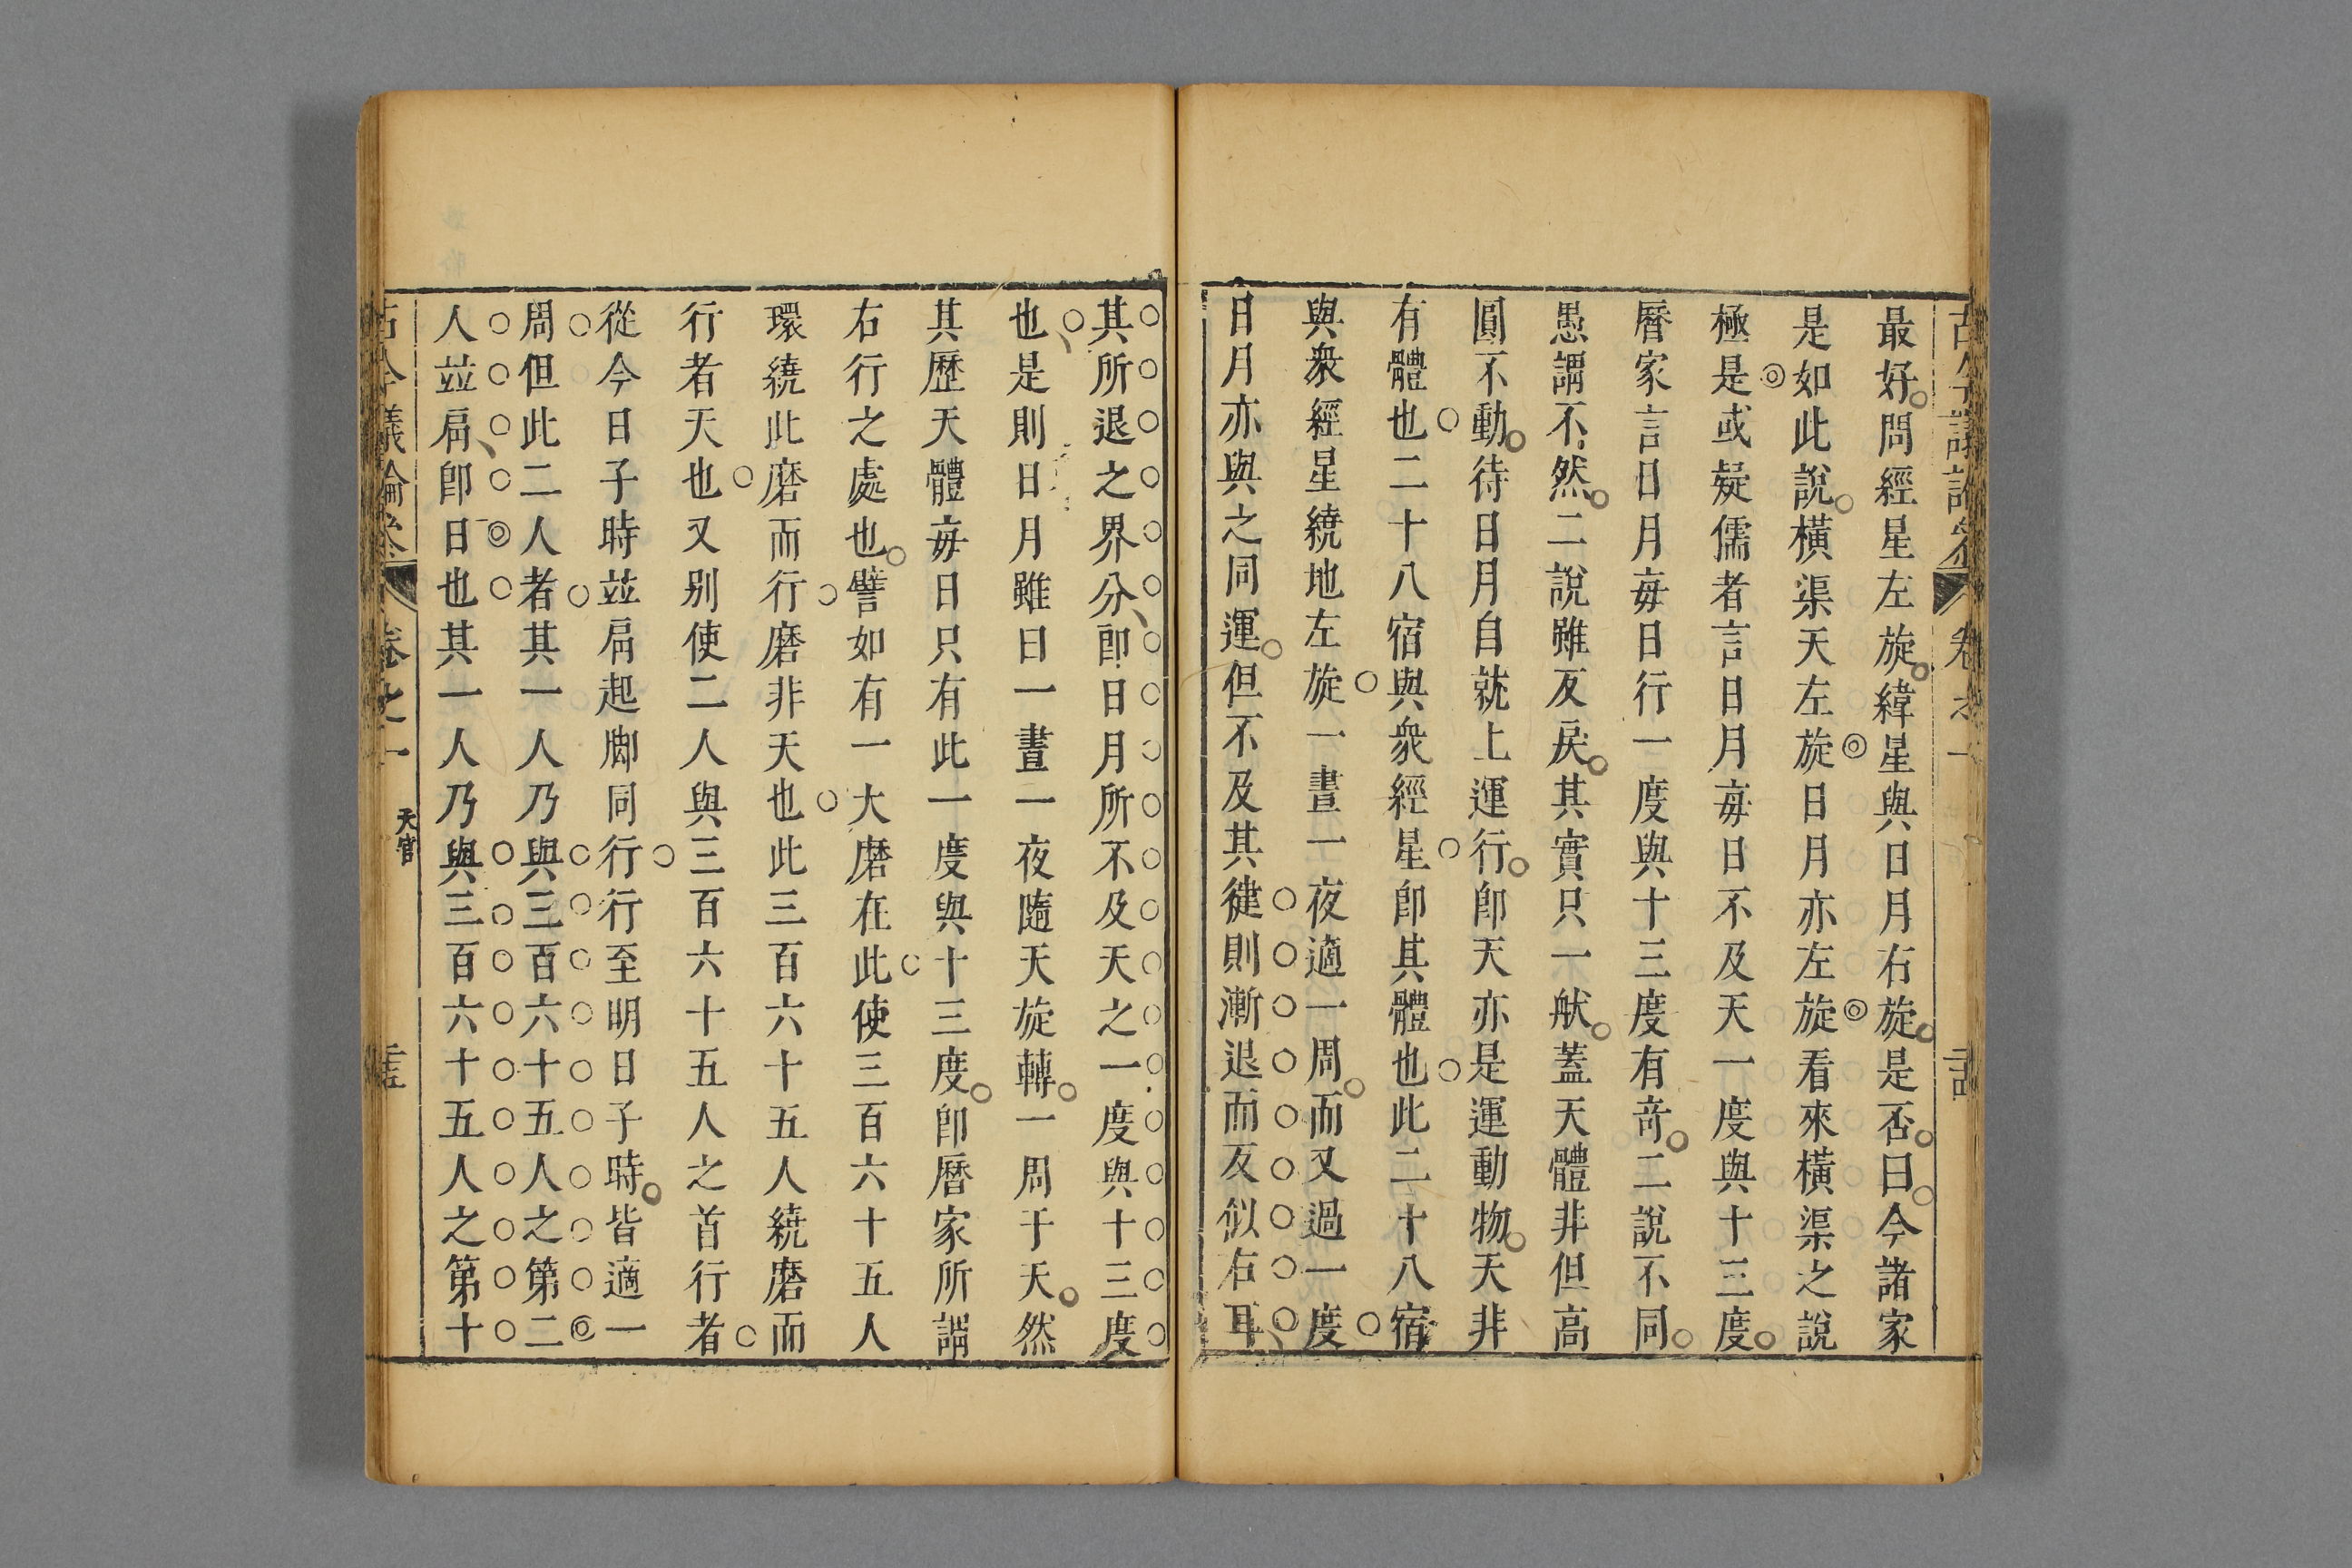 最好問經星左旋緯星與日月右旋是否曰今諸家
是如此說橫渠天左旋日月亦左旋看來橫渠之說
極是或疑儒者言日月每日不及天一度與十三度
曆家言日月每日行一度與十三度有奇二說不同
愚謂不然二說雖反戾其實只一般蓋天體非但高
圓不動待日月自就上運行卽天亦是運動物天非
有體也二十八宿與衆經星卽其體也此二十八宿
與衆經星繞地左旋一晝一夜適一周而又過一度
日月亦與之同運但不及其健則漸退而反似右耳
其所退之界分卽日月所不及天之一度與十三度
也是則日月雖曰一晝一夜隨天旋轉一周于天然
其歷天體每日只有此一度與十三度卽曆家所謂
右行之處也譬如有一大磨在此使三百六十五人
環繞此磨而行磨非天也此三百六十五人繞磨而
行者天也又别使二人與三百六十五人之首行者
從今日子時並肩起脚同行行至明日子時皆適一
周但此二人者其一人乃與三百六十五人之第二
人並肩卽日也其一人乃與三百六十五人之第十
古今議論參 卷之一 天官